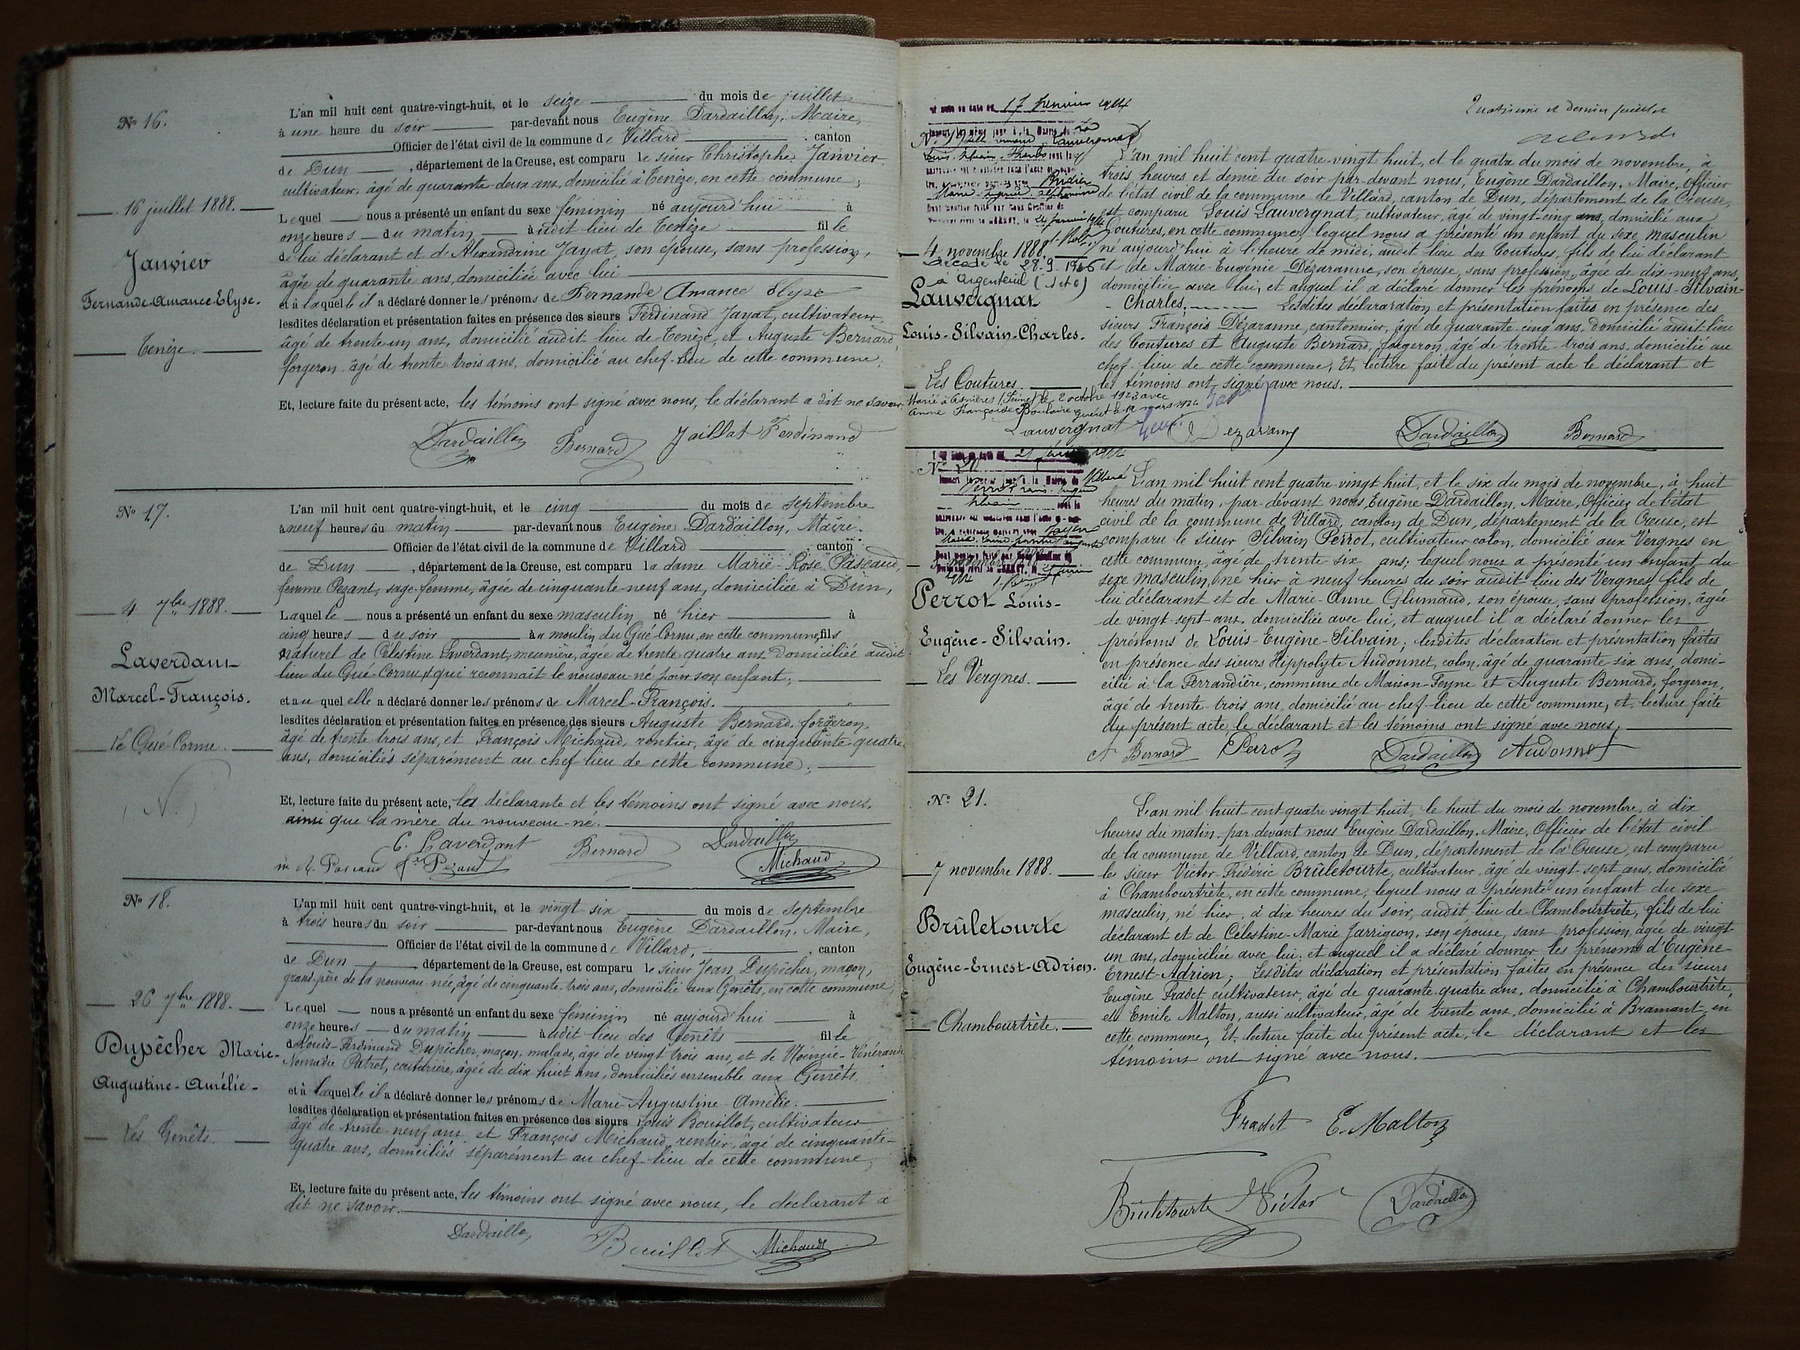 No 16.
L'an mil huit cent quatre-vingt-huit, et le seize du mois de juillet
à une heure du soir par-devant nous Eugène Dardaillon, Maire,
Officier de l'état civil de la commune de Villard canton
de Dun, département de la Creuse, est comparu le sieur Christophe Janvier
cultivateur, âgé de quarante deux ans, domicilié à Tenèze, en cette commune,
16 juillet 1888.
Lequel nous a présenté un enfant du sexe féminin né aujourd'hui à
onze heures du matin audit lieu de Tenèze fille
de lui déclarant et d'Alexandrine Jayat, son épouse, sans profession,
Janvier
âgée de quarante ans, domiciliée avec lui
Fernande-Amance-Elyse.
et à laquelle il a déclaré donner les prénoms de Fernande Amance Elyse
lesdites déclaration et présentation faites en présence des sieurs Ferdinand Jayat, cultivateur,
âgé de trente-un ans, domicilié audit lieu de Tenèze, et Auguste Bernard,
Tenèze.
forgeron, âgé de trente trois ans, domicilié au chef-lieu de cette commune.
Et, lecture faite du présent acte, les témoins ont signé avec nous, le déclarant a dit ne savoir.
Dardaillon Bernard Jaillat Ferdinand
No 17.
L'an mil huit cent quatre-vingt-huit, et le cinq du mois de septembre
à neuf heures du matin par-devant nous Eugène Dardaillon, Maire.
Officier de l'état civil de la commune de Villard canton
de Dun, département de la Creuse, est comparu la dame Marie-Rose Paseaud,
femme Pezant, sage-femme, âgée de cinquante-neuf ans, domiciliée à Dun,
4 7bre 1888.
Laquelle nous a présenté un enfant du sexe masculin né hier à
cinq heures du soir au moulin du Gué-Cornu, en cette commune, fils
naturel de Célestine Laverdant, meunière, âgée de trente quatre ans, domiciliée audit
Laverdant
lieu du Gué-Cornu, qui reconnaît le nouveau-né pour son enfant;
Marcel-François.
et auquel elle a déclaré donner les prénoms de Marcel-François.
lesdites déclaration et présentation faites en présence des sieurs Auguste Bernard, forgeron,
âgé de trente trois ans, et François Michaud, rentier, âgé de cinquante quatre
Le Gué-Cornu.
ans, domiciliés séparément au chef-lieu de cette commune;
Et, lecture faite du présent acte, les déclarante et les témoins ont signé avec nous.
ainsi que la mère du nouveau-né.
C. Laverdant Bernard Dardaillon
Michaud
No 18.
L'an mil huit cent quatre-vingt-huit, et le vingt six du mois de septembre
à trois heures du soir par-devant nous Eugène Dardaillon, Maire,
Officier de l'état civil de la commune de Villard, canton
de Dun, département de la Creuse, est comparu le sieur Jean Dupêcher, maçon,
grand-père de la nouveau née, âgé de cinquante-trois ans, domicilié aux Genêts, en cette commune,
26 7bre 1888.
Lequel nous a présenté un enfant du sexe féminin né aujourd'hui à
onze heures du matin audit lieu des Genêts fille
de Louis-Ferdinand Dupêcher, maçon, malade, âgé de vingt trois ans, et de
Dupêcher Marie-
couturière, âgée de dix huit ans, domiciliés ensemble aux Genêts.
Augustine-Amélie-
et à laquelle il a déclaré donner les prénoms de Marie-Augustine Amélie.
lesdites déclaration et présentation faites en présence des sieurs Louis Bouillot, cultivateur
âgé de trente-neuf ans, et François Michaud, rentier, âgé de cinquante-
Les Genêts.
quatre ans, domiciliés séparément au chef-lieu de cette commune,
Et, lecture faite du présent acte, les témoins ont signé avec nous, le déclarant a
dit ne savoir.
Dardaillon Bouillot Michaud
Quatrième et dernier feuillet
17 Janvier 1914
L'an mil huit cent quatre-vingt huit, et le quatre du mois de novembre, à
trois heures et demie du soir par-devant nous, Eugène Dardaillon, Maire, Officier
de l'état civil de la commune de Villard, canton de Dun, département de la Creuse,
est comparu Louis Lauvergnat, cultivateur, âgé de vingt-cinq ans, domicilié aux
Coutures, en cette commune, lequel nous a présenté un enfant du sexe masculin
4 novembre 1888
né aujourd'hui à l'heure de midi, audit lieu des Coutures, fils de lui déclarant
Décédé le 28.9.1966
et de Marie-Eugénie Dézaranne, son épouse, sans profession, âgée de dix-neuf ans,
à Argenteuil (S et O)
domiciliée avec lui, et auquel il a déclaré donner les prénoms de Louis-Silvain-
Lauvergnat
Charles; Lesdites déclararation et présentation faites en présence des
Louis-Silvain-Charles.
sieurs François Dézaranne, cantonnier, âgé de quarante-cinq ans, domicilié audit lieu
des Coutures et Auguste Bernard, forgeron, âgé de trente-trois ans, domicilié au
chef-lieu de cette commune. Et, lecture faite du présent acte le déclarant et
Les Coutures.
les témoins ont signé avec nous.
Marié à Asnières (Seine) le 2 octobre 1923 avec
Lauvergnat Dezaranne Dardaillon Bernard
No 20
L'an mil huit cent quatre vingt huit, et le six du mois de novembre, à huit
heures du matin, par-devant nous Eugène Dardaillon, Maire, Officier de l'état
civil de la commune de Villard, canton de Dun, département de la Creuse, est
comparu le sieur Silvain Perrot, cultivateur colon, domicilié aux Vergnes en
cette commune, âgé de trente six ans; lequel nous a présenté un enfant du
sexe masculin, né hier à neuf heures du soir audit lieu des Vergnes, fils de
Perrot Louis-
lui déclarant et de Marie-Anne Glumaud, son épouse, sans profession, âgée
de vingt-sept ans, domiciliée avec lui, et auquel il a déclaré donner les
Eugène-Silvain.
prénoms de Louis-Eugène-Silvain; lesdites déclaration et présentation faites
en présence des sieurs Hippolyte Audonnet, colon, âgé de quarante-six ans, domi-
Les Vergnes.
cilié à la Perrandière, commune de Maison-Feyne et Auguste Bernard, forgeron,
âgé de trente trois ans, domicilié au chef-lieu de cette commune, et, lecture faite
du présent acte, le déclarant et les témoins ont signé avec nous,
A Bernard Perrot Dardaillon Audonnet
No 21.
L'an mil huit cent quatre vingt huit, le huit du mois de novembre, à dix
heures du matin, par-devant nous Eugène Dardaillon, Maire, Officier de l'état civil
de la commune de Villard, canton de Dun, département de la Creuse, est comparu
7 novembre 1888.
le sieur Victor Frédéric Brûletourte, cultivateur, âgé de vingt-sept ans, domicilié
à Chambourtrête, en cette commune, lequel nous a présenté un enfant du sexe
masculin, né hier, à dix heures du soir, audit lieu de Chambourtrête, fils de lui
Brûletourte
déclarant et de Célestine-Marie Jarrigeon, son épouse, sans profession, âgée de vingt
un ans, domiciliée avec lui, et auquel il a déclaré donner les prénoms d'Eugène-
Eugène-Ernest-Adrien.
Ernest-Adrien; Lesdites déclaration et présentation faites en présence des sieurs
Eugène Fradet cultivateur, âgé de quarante-quatre ans, domicilié à Chambourtrête,
Chambourtrête.
et Emile Malton, aussi cultivateur, âgé de trente ans, domicilié à Bramant, en
cette commune, Et, lecture faite du présent acte, le déclarant et les
témoins ont signé avec nous.
Fradet E. Malton
Brûletourte Victor Dardaillon